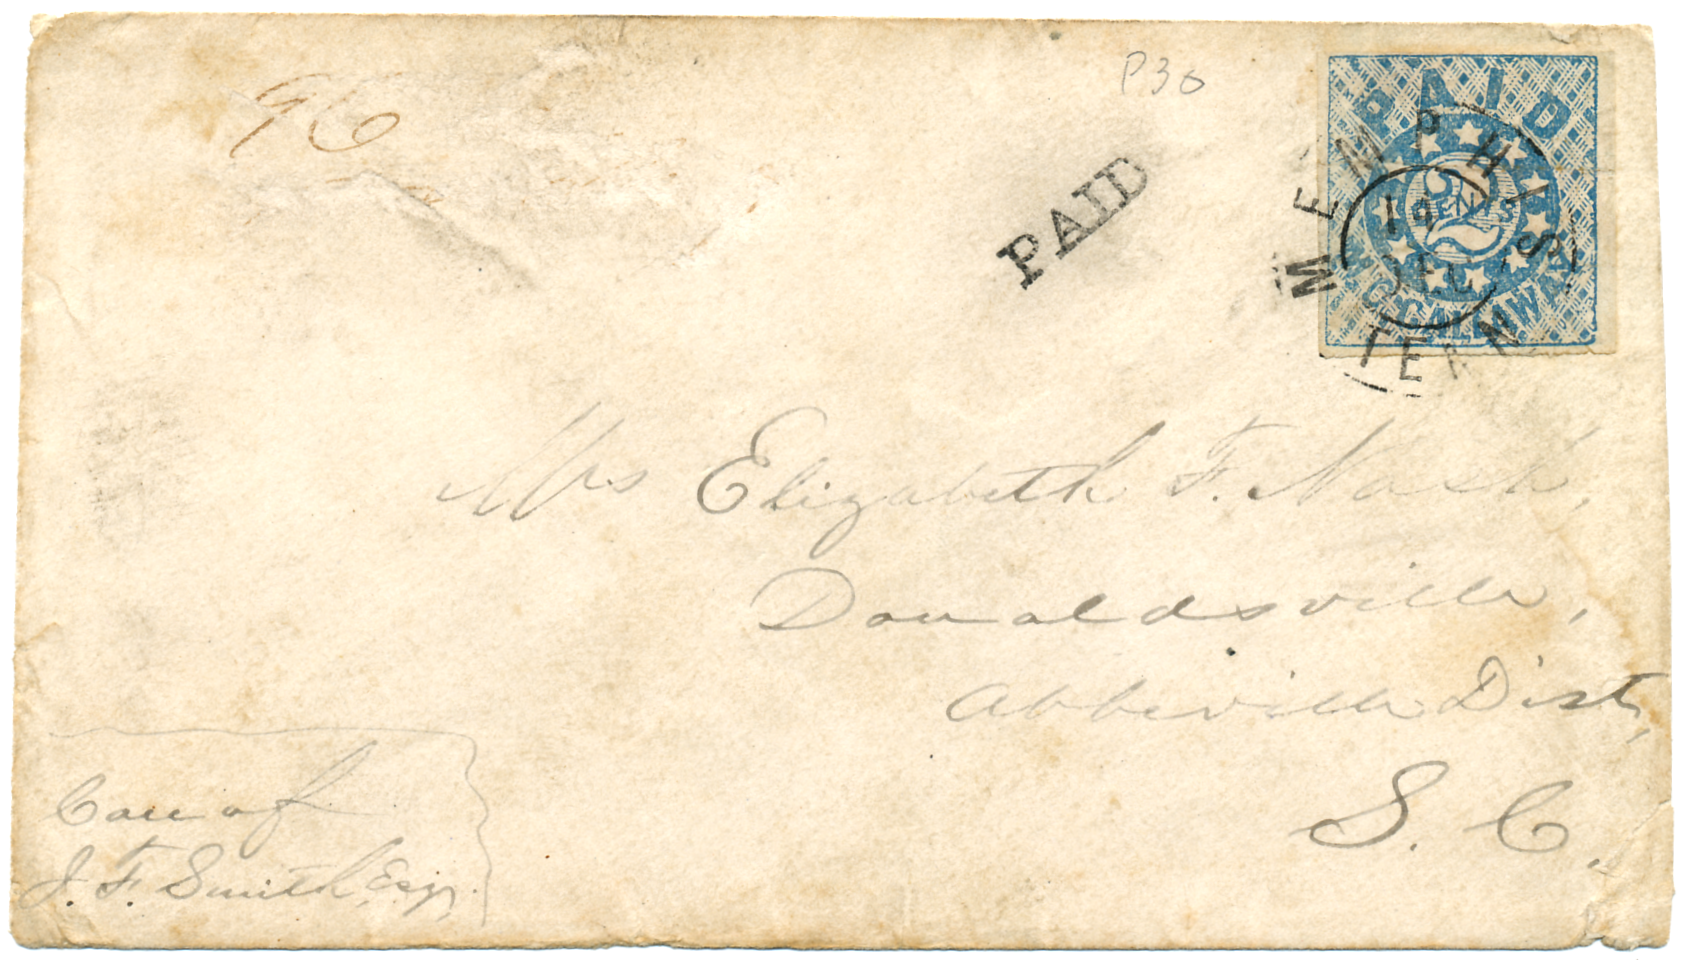 96
P30
PAID
PAID
2
CENTS
M. C. GALLAWAY
MEMPHIS
19
DEC
TENN
Mrs Elizabeth F. Nash,
Donaldsville,
Abbeville Dist,
S. C.
Care of
J. F. Smith, Esqr.